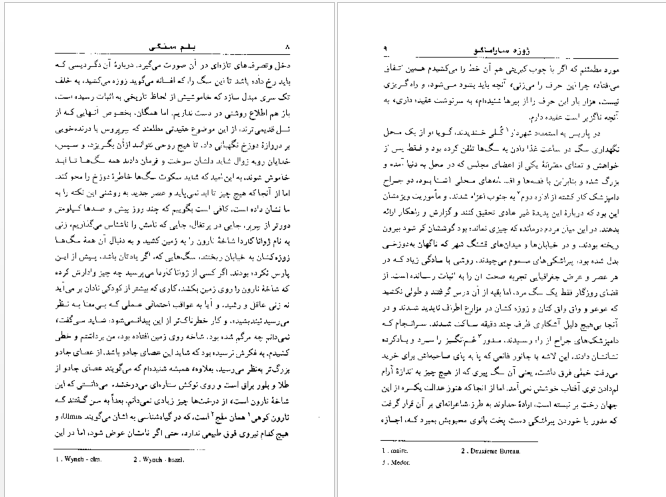 ۸ بلم سنگی
دخل‌وتصرف‌های تازه‌ای در آن صورت می‌گیرد. درباره آن دگردیسی که
باید رخ داده باشد تا این سگ را، که افسانه می‌گوید زوزه می‌کشید، به خلف
تک سری مبدل سازد که خاموشیش از لحاظ تاریخی به اثبات رسیده است،
باز هم اطلاع روشنی در دست نداریم. اما همگان، بخصوص آنهایی که از
نسل قدیمی‌ترند، از این موضوع عقیدتی مطلعند که سربروس با درنده‌خویی
بر دروازه دوزخ نگهبانی داد، تا هیچ روحی نتواند ازآن بگریزد، و سپس،
خدایان روبه زوال شاید دلشان سوخت و فرمان دادند همه سگ‌ها تا ابد
خاموش شوند، به این امید که شاید سکوت سگ‌ها خاطره دوزخ را محو کند.
اما از آنجا که هیچ چیز تا ابد نمی‌پاید و عصر جدید به روشنی این نکته را به
ما نشان داده است، کافی است بگوییم که چند روز پیش و صدها کیلومتر
دورتر از سربر، جایی در پرتغال، جایی که نامش را ناشناس می‌گذاریم، زنی
به نام ژوانا کاردا شاخهٔ نارون را به زمین کشید و به دنبال آن همهٔ سگ‌ها
زوزه‌کشان به خیابان ریختند، سگ‌هایی که، اگر یادتان باشد، پیش از این
پارس نکرده بودند. اگر کسی از ژوانا کاردا می‌پرسید چه چیز وادارش کرده
که شاخهٔ نارون را روی زمین بکشد، کاری که بیشتر از کودکی نادان بر می‌آید
نه زنی عاقل و رشید، و آیا به عواقب احتمالی عملی که بی‌معنا به نظر
می‌رسید نیندیشیده، و کار خطرناک‌تر از این پیدا نمی‌شود، شاید می‌گفت،
نمی‌دانم چه مرگم شده بود، شاخه روی زمین افتاده بود، من برداشتم و خطی
کشیدم. به فکرش نرسیده بود که شاید این عصای جادو باشد. از عصای جادو
بزرگ‌تر به‌نظر می‌رسید، بعلاوه، همیشه شنیده‌ام که می‌گویند عصای جادو از
طلا و بلور براق است و روی نوکش ستاره‌ای می‌درخشد. می‌دانستی که این
شاخهٔ نارون است، از درخت‌ها چیز زیادی نمی‌دانم. بعداً به من گفتند که
نارون کوهی¹ همان ملج² است، که در گیاه‌شناسی به اشان می‌گویند Ulmus و
هیچ کدام نیروی فوق طبیعی ندارد، حتی اگر نامشان عوض شود، اما در این
1 . Wynch - elm. 2 . Wynch - hazel.
ژوزه ساراماگو ۹
مورد مطمئنم که اگر با چوب کبریتی هم آن خط را می‌کشیدم همین اتفاق
می‌افتاد، چرا این حرف را می‌زنی، آنچه باید بشود می‌شود، و راه گریزی
نیست، هزار بار این حرف را از پیرها شنیده‌ام، به سرنوشت عقیده داری، به
آنچه ناگزیر است عقیده دارم.
در پاریس به استمداد شهردار¹ کُلی خندیدند، گویا او از یک محل
نگهداری سگ در ساعت غذا دادن به سگ‌ها تلفن کرده بود و فقط پس از
خواهش و تمنای مصرانهٔ یکی از اعضای مجلس که در محل به دنیا آمده و
بزرگ شده و بنابراین با قصه‌ها و افسانه‌های محلی آشنا بود، دو جراح
دامپزشک کار کشته از اداره دوم² به جنوب اعزام شدند، و مأموریت ویژه‌شان
این بود که درباره این پدیده غیر عادی تحقیق کنند و گزارش و راهکار ارائه
بدهند. در این میان مردم درمانده که چیزی نمانده بود گوششان کر شود بیرون
ریخته بودند، و در خیابان‌ها و میدان‌های قشنگ شهر که ناگهان به‌دوزخی
بدل شده بود، پیراشکی‌های مسموم می‌چیدند، روشی با سادگی زیاد که در
هر عصر و عرض جغرافیایی تجربه صحت آن را به اثبات رسانده است. از
قضای روزگار فقط یک سگ مرد، اما بقیه از آن درس گرفتند و طولی نکشید
که عوعو و واق واق کنان و زوزه کشان در مزارع اطراف ناپدید شدند و در
آنجا بی‌هیچ دلیل آشکاری ظرف چند دقیقه ساکت شدند. سرانجام که
دامپزشک‌های جراح از راه رسیدند، مدور³ غم‌انگیز را سرد و بادکرده
نشانشان دادند، این لاشه با جانور قانعی که پا به پای صاحبانش برای خرید
می‌رفت خیلی فرق داشت، یعنی آن سگ پیری که از هیچ چیز به اندازهٔ آرام
لم‌دادن توی آفتاب خوشش نمی‌آمد. اما از آنجا که هنوز عدالت یکسره از این
جهان رخت بر نبسته است، ارادهٔ خداوند به طرز شاعرانه‌ای بر آن قرار گرفت
که مدور با خوردن پیراشکی دست پخت بانوی محبوبش بمیرد که، اجازه
1 . maire. 2 . Deuxieme Bureau
3 . Medor.